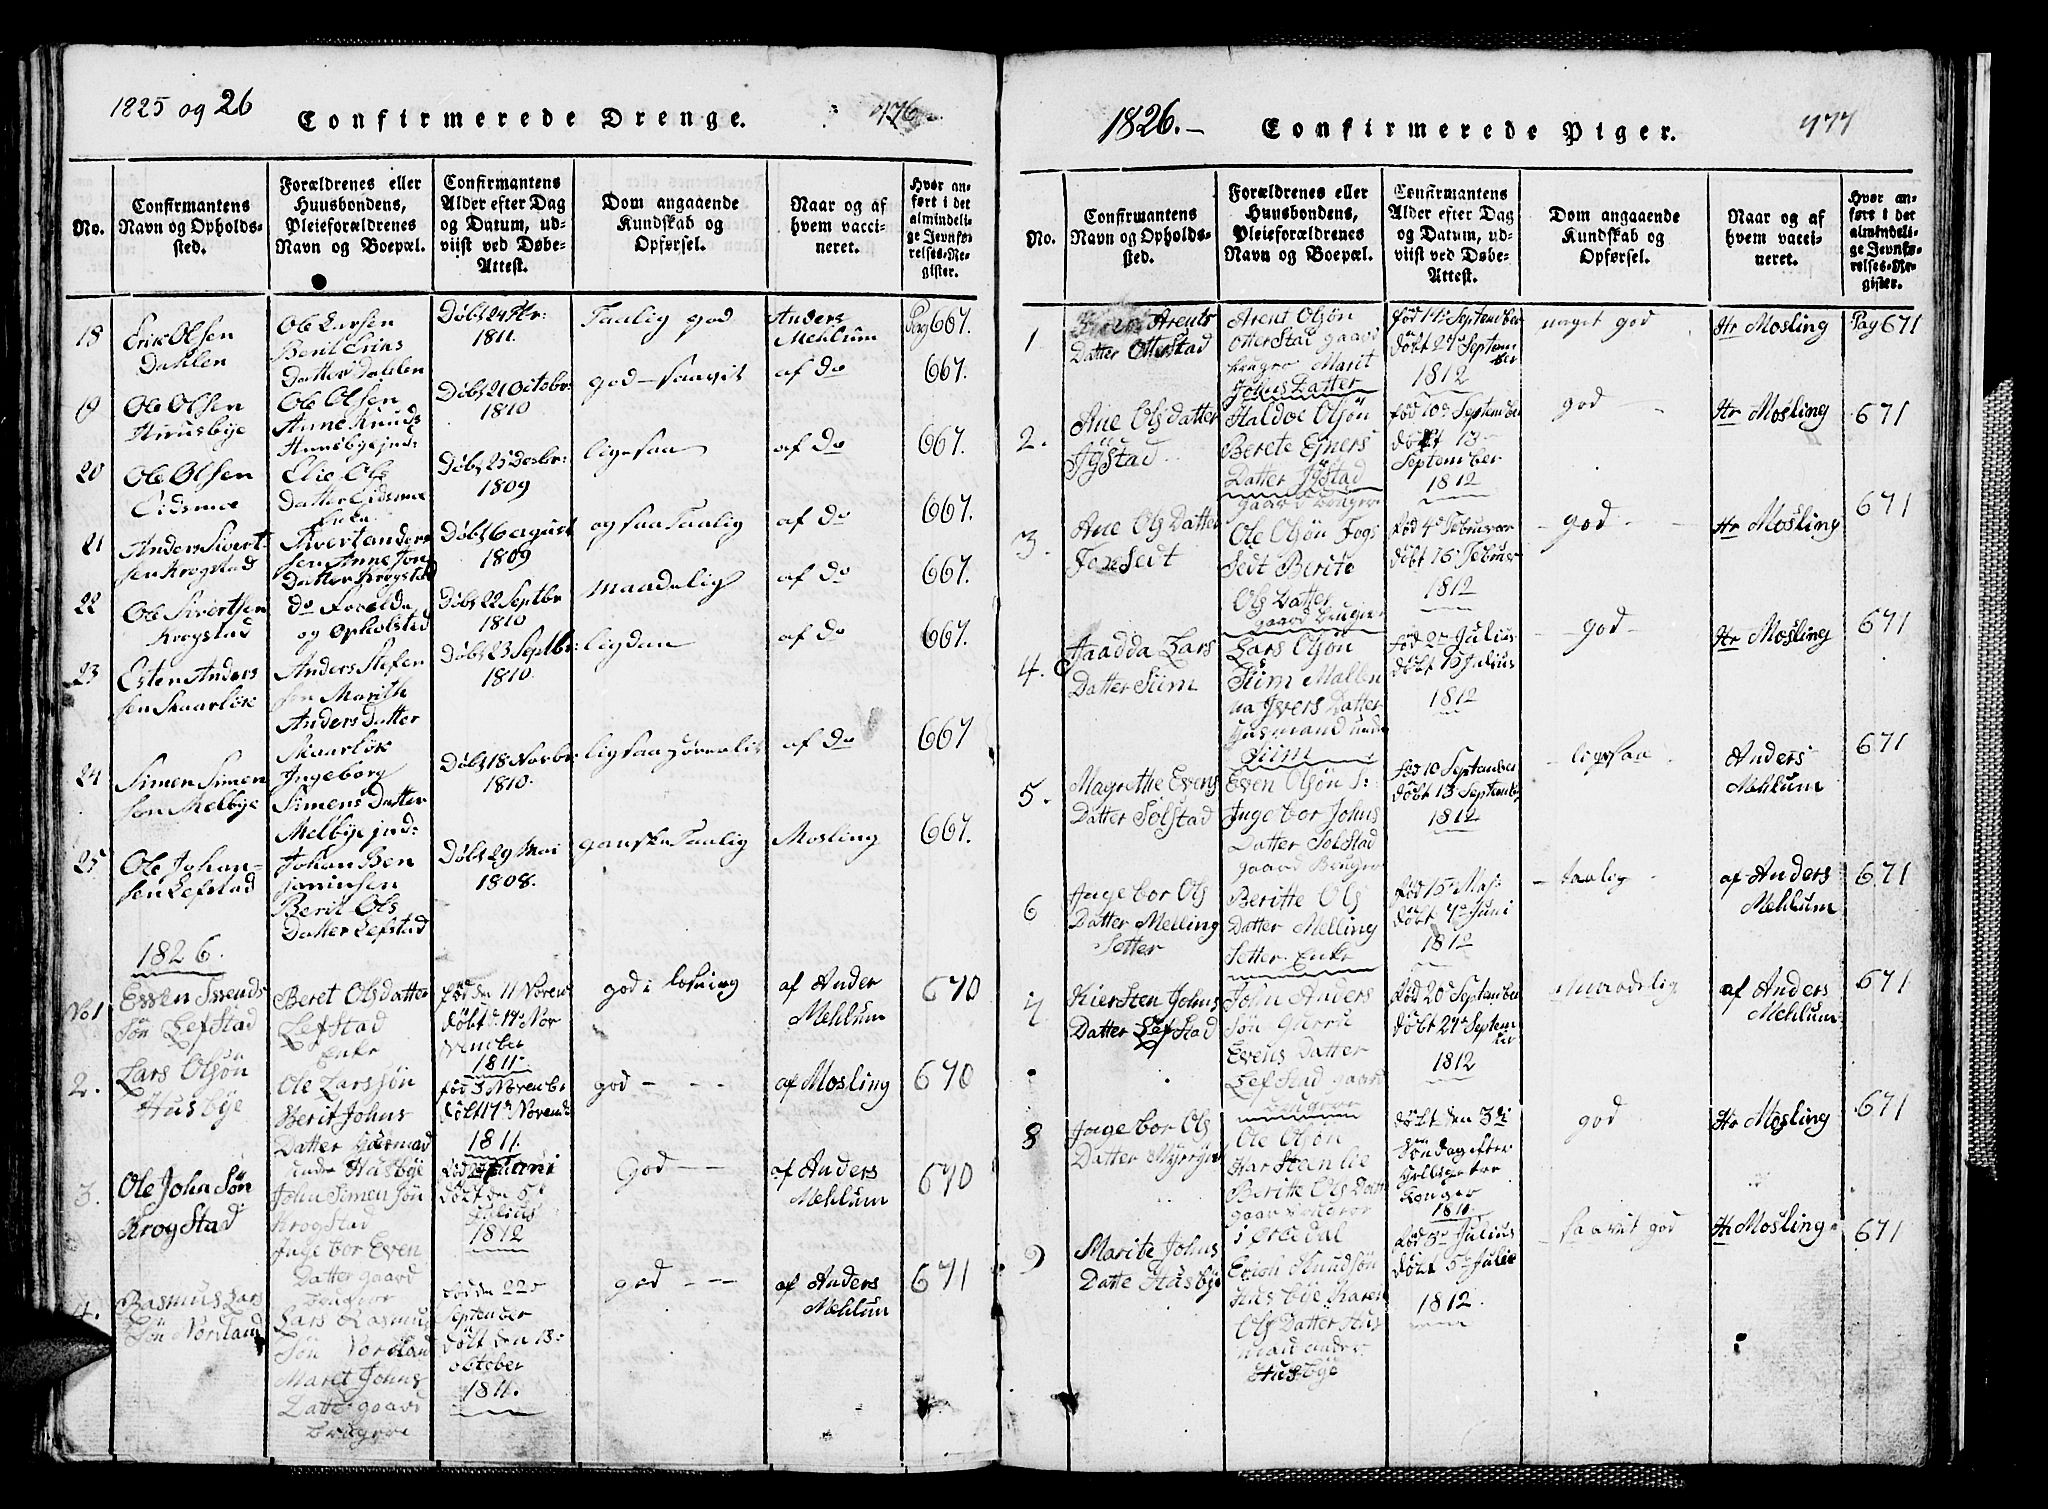 1825 og 26
Confirmerede Drenge.
476
No.
Confirmantens
Navn og Opholds-
sted.
Forældrenes eller
Huusbondens,
Pleieforældrenes
Navn og Boepæl.
Confirmantens
Alder efter Dag
og Datum, ud-
viist ved Døbe-
Attest.
Dom angaaende
Kundskab og
Opførsel.
Naar og af
hvem vacci-
neret.
Hvor an-
ført i det
almindeli-
ge Jevnfø-
relses-Re-
gister.
18
Erik Olsen
Dahlen
Ole Larsen
Berit Erics
Datter Dahlen
1811.
Taalig god
Anders
Mehlum
Pag 667.
19
Ole Olsen
Huusbye
Ole Olsen
Anne Knuds
Huusbye ind:
Døbt 21 Octobr:
1810
god
af do
667.
20
Ole Olsen
Eidsmoe
Elie Ols
Datter Eidsmoe
Enke
Døbt 25 Decbr:
1809
ligesaa
af do
667.
21
Anders Sivert-
sen Krogstad
Sivert Anders
sen Anne Jons
Datter Krogstad
Døbt 6 august
1809
ogsaa Taalig
af do
667.
22
Ole Sivertsen
Krogstad
do Forældre
og Opholsted
Døbt 22 Septbr
1810
maadelig
af do
667.
23
Esten Anders
sen Skaarløk
Anders Stefen
sen Marith
Anders Datter
Døbt 23 Septbr:
1810.
ligedan
af do
667.
24
Simen Simen
sen Melbye
Ingeborg
Simens Datter
Melbye ind:
Døbt 18 Novbr:
1810.
af do
667
25
Ole Johan-
sen Lefstad
Johan Ben
jaminsen
Berit Ols
Datter Lefstad
Døbt 29 Mai
1808.
ganske Taalig
Mosling
667.
1826.
No 1
Even Svends
Søn LefStad
Beret Olsdatter
LefStad
Enke
fød dn 11 Novemb
døbt d. 17 No
vember
1811.
god i læsning
af Ander
Mehlum
670
2.
Lars Olsøn
Husbye
Ole Larssøn
Berit Johns
Datter Huusmad
unde Husbye
fød 3 Novemb
døbt 17 Novemb
1811.
god - - -
af Mosling
670
3.
Ole John Søn
KrogStad
John Simen Søn
KrogStad
Ingebor Even
Datter gaard
bruger
døbt den 5t
Julius
1812
God - -
af Anders
Mehlum
670
4.
Rasmus Lars
Søn Norsland
Lars Rasmus
Søn Norsland
Maret Johns
Datte gaard
brugere
fød dn 22
September
døbt den 13
october
1811.
god - - -
af Anders
Mehlum
671
1826.
Confirmerede Piger.
477
No.
Confirmantens
Navn og Opholds-
sted.
Forældrenes eller
Huusbondens,
Pleieforældrenes
Navn og Boepæl.
Confirmantens
Alder efter Dag
og Datum, ud-
viist ved Døbe-
Attest.
Dom angaaende
Kundskab og
Opførsel.
Naar og af
hvem vacci-
neret.
Hvor an-
ført i det
almindeli-
ge Jevnfø-
relses-Re-
gister.
1
Arents
Datter OtterStad
Arent Olsøn
OtterStad gaard
bruger Marit
Johns Datter
fød 14 September
døbt 27 Septem
ber
1812
meget god
Hr Mosling
Pag 671
2.
Ane Ols datter
JyStad
Haldoe Olsøn
Berete Ejners
Datter JyStad
gaard brugere
fød 10 September
døbt 13
September
1812
god
Hr Mosling
671
3.
Ane Ols Datter
Ole Olsøn
Berite
Ols Datter
gaard bruger
fød 4 Februar
døbt 16 Februar
1812
god
Hr Mosling
671
4.
Lars
Datter Siim
Lars Olsøn
Siim Malen
aa Ivers Datter
Huusmand unde
Siim
fød 2 Julius
døbt 15 Julius
1812
god
Hr Mosling
671
5.
Magrethe Evens
Datter SolStad
Even Olsøn S:
Ingebor Johns
Datter SolStad
gaard Bruger
fød 10 September
døbt 13 September
1812
ligesaa
Anders
Mehlum
671
6
Ingebor Ols
Datter Melling
Setter
Beritte Ols
Datter Melling
Setter Enke
fød 15 Maj
døbt 7 Juni
1812
taalig
af Anders
Mehlum
671
7
KierSten Johns
Datter LefStad
John Anders
Søn Guru
Evens Datter
LefStad gaard
bruger
fød 20 September
døbt 27 Septem
ber
1812
maadelig
af Anders
Mehlum
671
8
Ingebor Ols
Datter
Ole Olsøn
Beritte Ols Datt
gaard bruger
døbt den 3die
Søndag efter
Hellige tre
Konger
god
Hr Mosling
671
9
Marite Johns
Datte Husbye
Erich Knudsøn
Husbye Karen
Ols Datter Hus
mand under
Husbye
Julius
døbt 5 Julie
1812
saavit god
Hr Mosling
671